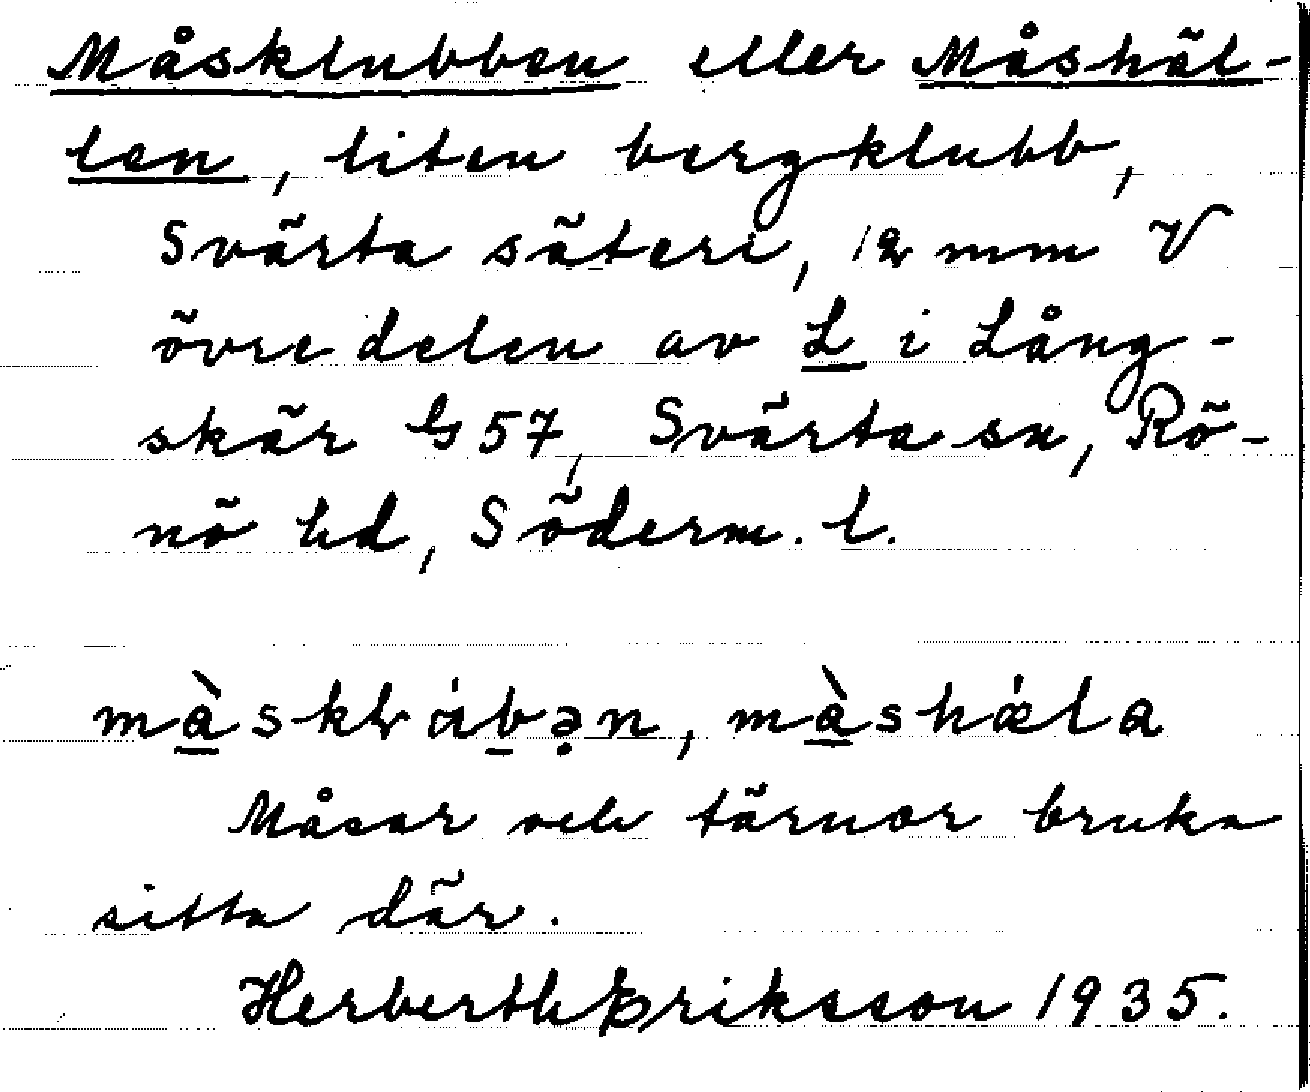 Måsklubben eller Måshäl-
len, liten bergklubb,
Svärta säteri, 12 mm V
övre delen av L i Lång-
skär G 57, Svärta sn, Rö-
nö hd, Söderm. l.
må̀skl
Måsar och tärnor bruka
sitta där.
Herberth Eriksson 1935.